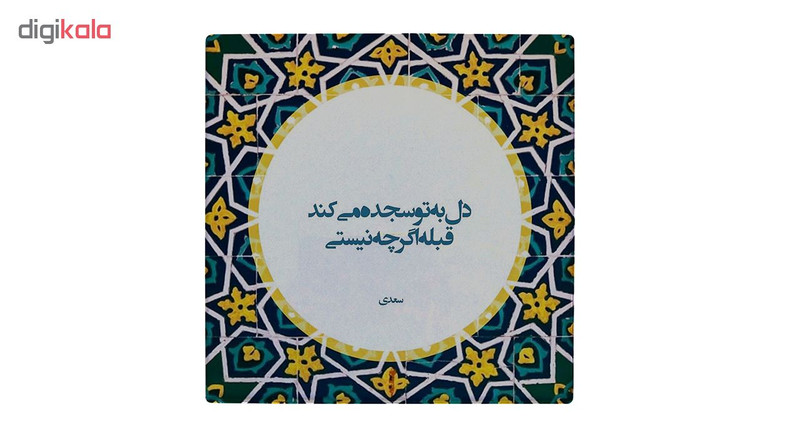 digikala
دل به تو سجده می کند
قبله اگرچه نیستی
سعدی